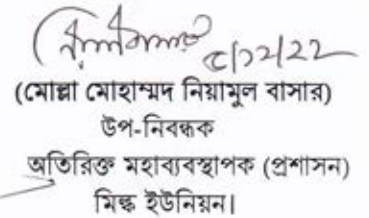 ৫/১২/২২
(মোল্লা মোহাম্মদ নিয়ামুল বাসার)
উপ-নিবন্ধক
অতিরিক্ত মহাব্যবস্থাপক (প্রশাসন)
মিল্ক ইউনিয়ন।